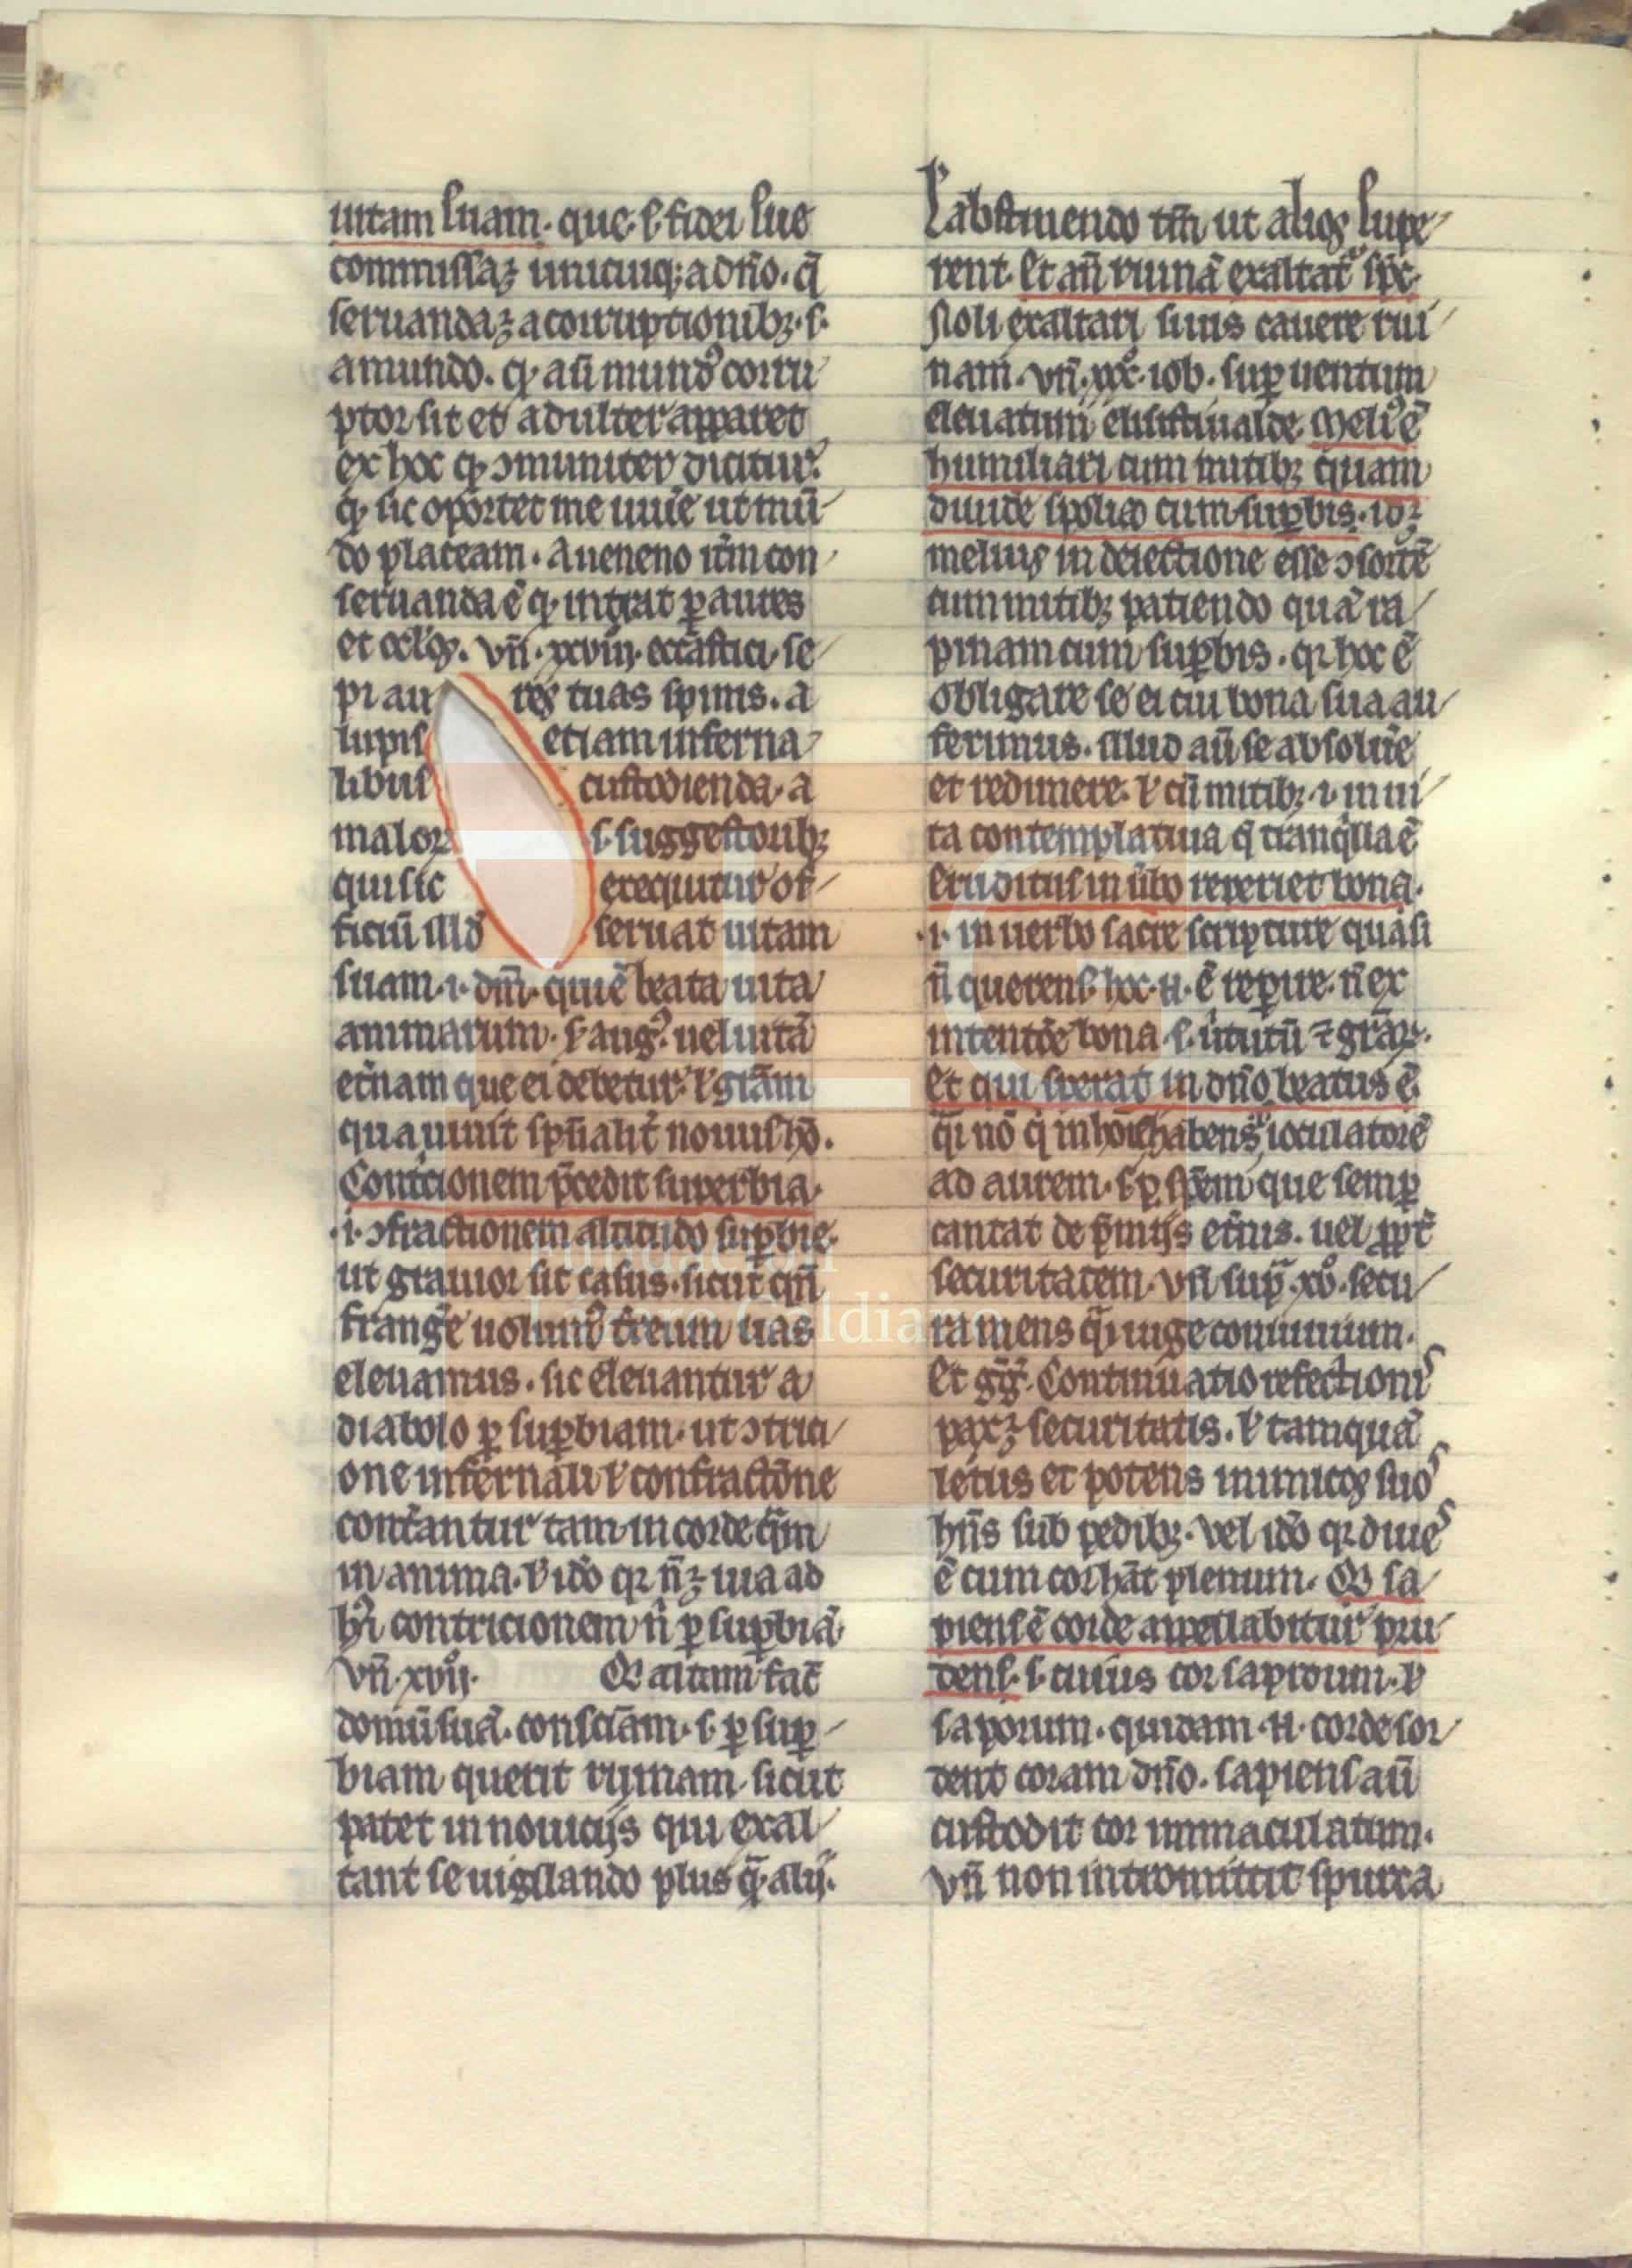 uitam suam. que .s. fidei sue
commissaꝫ unicuiqꝫ a dño. ⁊
seruandaꝫ a corruptionibꝫ .s.
a mundo. ꝙ aū mundꝰ corru
ptor sit et adulter apparet
ex hoc ꝙ ꝯmuniter dicitur.
ꝙ sic oportet me uiuē ut mū
do placeam. A ueneno itm̄ con
seruanda ē ꝙ intrat ꝑ aures
et oclos. vñ. xxviij. ecc̄astici. se
pi au res tuas spinis. a
lupis etiam inferna
libus custodienda. a
malor .s. suggestoribꝫ
qui sic exequitur of
ficiū illd̄ seruat uitam
suam .i. dm̄. qui ē beata uita
animarum. s̄ augꝰ. uel uitā
et̄nam que ei debetur. ł gr̄am
qua uiuit spūalit̄ nouus hō.
Contcionem p̄cedit superbia.
.i. ꝯfractionem altitudo suꝑbie.
ut grauior sit casus. sicut qn̄
frangē uolumꝰ uas
eleuamus. sic eleuantur a
diabolo ꝑ suꝑbiam. ut ꝯtrici
one infernali ł confractōne
cont̄antur tam in corde q̄m
in anima. ł idō qꝛ uia ad
contricionem n̄ ꝑ suꝑbiā.
vñ. xvij. Qi altam fac̄
domū suā. consciam .s. ꝑ suꝑ
biam querit ruynam. sicut
patet in nouicijs qui exal
tant se uigilando plus q̄ alij.
ł abstinendo tm̄ ut alios supe
rent. Et an̄ ruinā exaltat̄ sp̄c.
Noli exaltari si uis cauere rui
nam. vñ. xxx. iob. suꝑ uentum
eleuatum elisisti ualde. Meliꝰ ē
humiliari cum mitibꝫ quam
diuidē spolia cum suꝑbis.
melius in deiectione esse ꝯsortē
cum mitibꝫ patiendo quā ra
pinam cum suꝑbis. qꝛ hoc ē
obligare se ei cui bona sua au
ferimus. illud aū se absoluē
et redimere. ł cū mitibꝫ .i. in ui
ta contemplatiua q̄ tranq̄lla ē
Eruditus in ūbo reperiet bona.
.i. in uerbo sacre scripture quasi
n̄ querens. hoc .n. ē reꝑire. n̄ ex
intentōe bona .s. ūtutū ⁊ gr̄aꝝ.
Et qui sperat in dño beatus ē.
qi nō habens ioculatorē
ad aurem .s. spem que semꝑ
cantat de p̄mijs et̄nis. uel ꝓpt̄
securitatem. vñ suꝑ. xv. secu
ra mens q̄i iuge conuiuium.
Et gg̅. Continuatio refectionis
securitatis. ł tamquā
letus et potens inimicos suos
hn̄s sub pedibꝫ. vel idō qꝛ diues
ē cum cor hāt plenum. Qi sa
piens ē corde appellabitur pru
dens. .s. cuius cor saporum. ł
saporum. quidam .n. corde sor
dent coram dño. sapiens aū
custodit cor immaculatum.
vñ non intromittit spurca
Fundación
Lázaro Galdiano